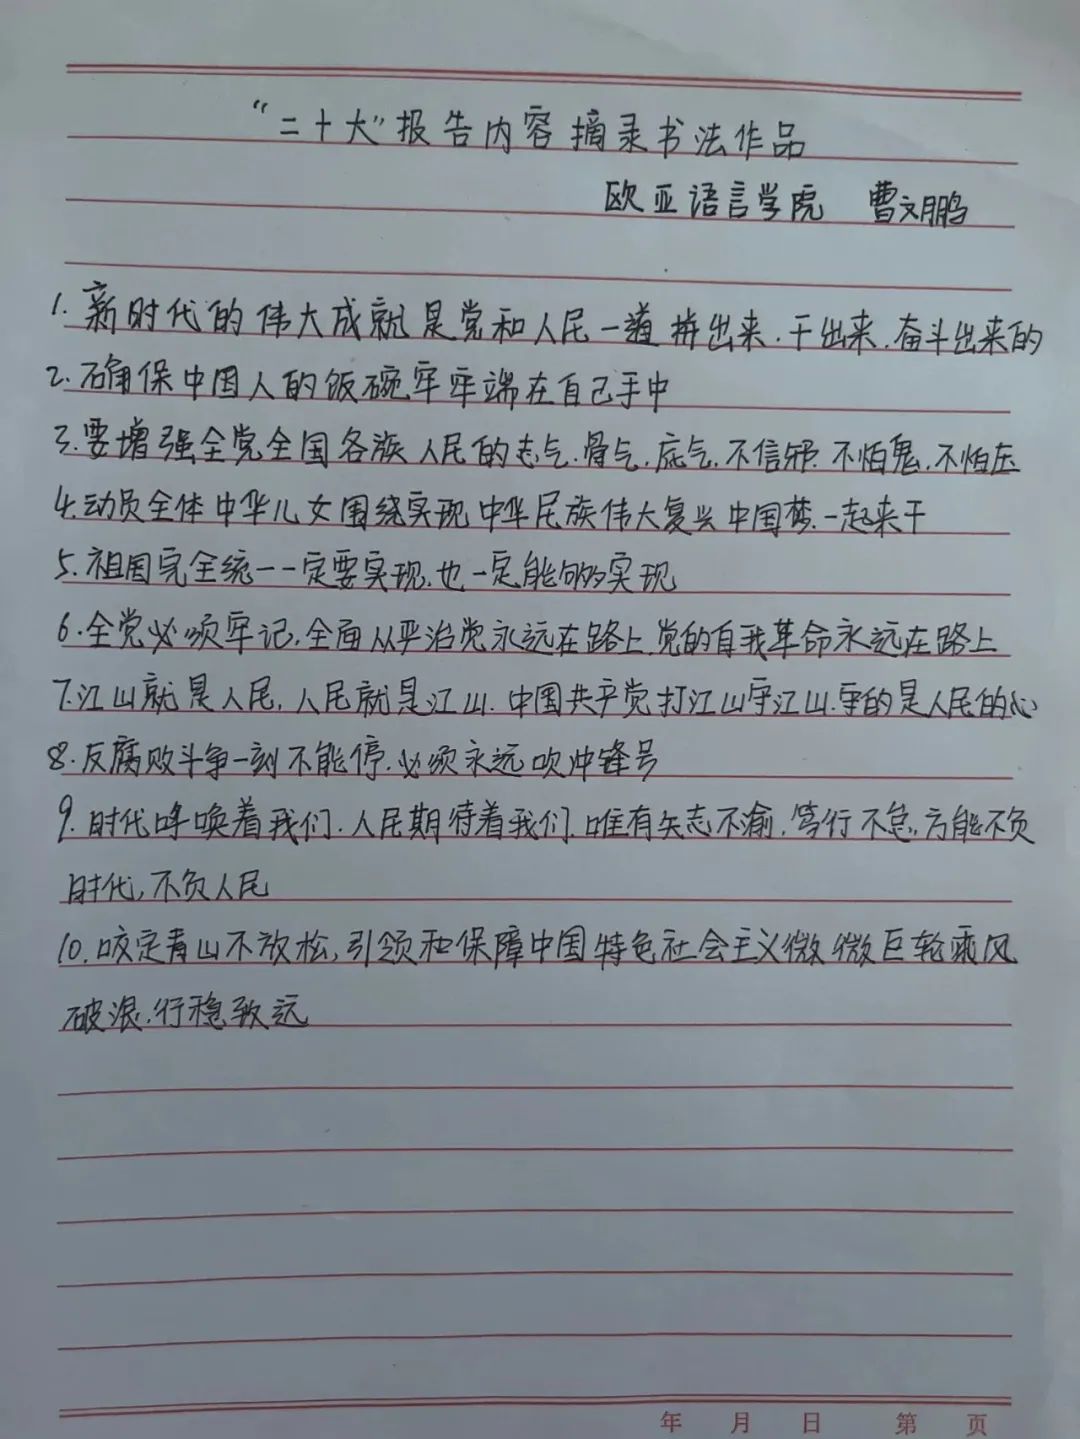 “二十大”报告内容摘录书法作品
欧亚语言学院 曹文鹏
1.新时代的伟大成就是党和人民一道拼出来.干出来.奋斗出来的
2.确保中国人的饭碗牢牢端在自己手中
3.要增强全党全国各族人民的志气.骨气.底气.不信邪.不怕鬼.不怕压
4.动员全体中华儿女围绕实现中华民族伟大复兴中国梦.一起来干
5.祖国完全统一一定要实现.也一定能够实现
6.全党必须牢记.全面从严治党永远在路上.党的自我革命永远在路上
7.江山就是人民,人民就是江山.中国共产党打江山守江山.守的是人民的心
8.反腐败斗争一刻不能停.必须永远吹冲锋号
9.时代呼唤着我们.人民期待着我们.唯有矢志不渝.笃行不怠,方能不负
时代,不负人民
10.咬定青山不放松,引领和保障中国特色社会主义微微巨轮乘风
破浪.行稳致远
年 月 日 第 页